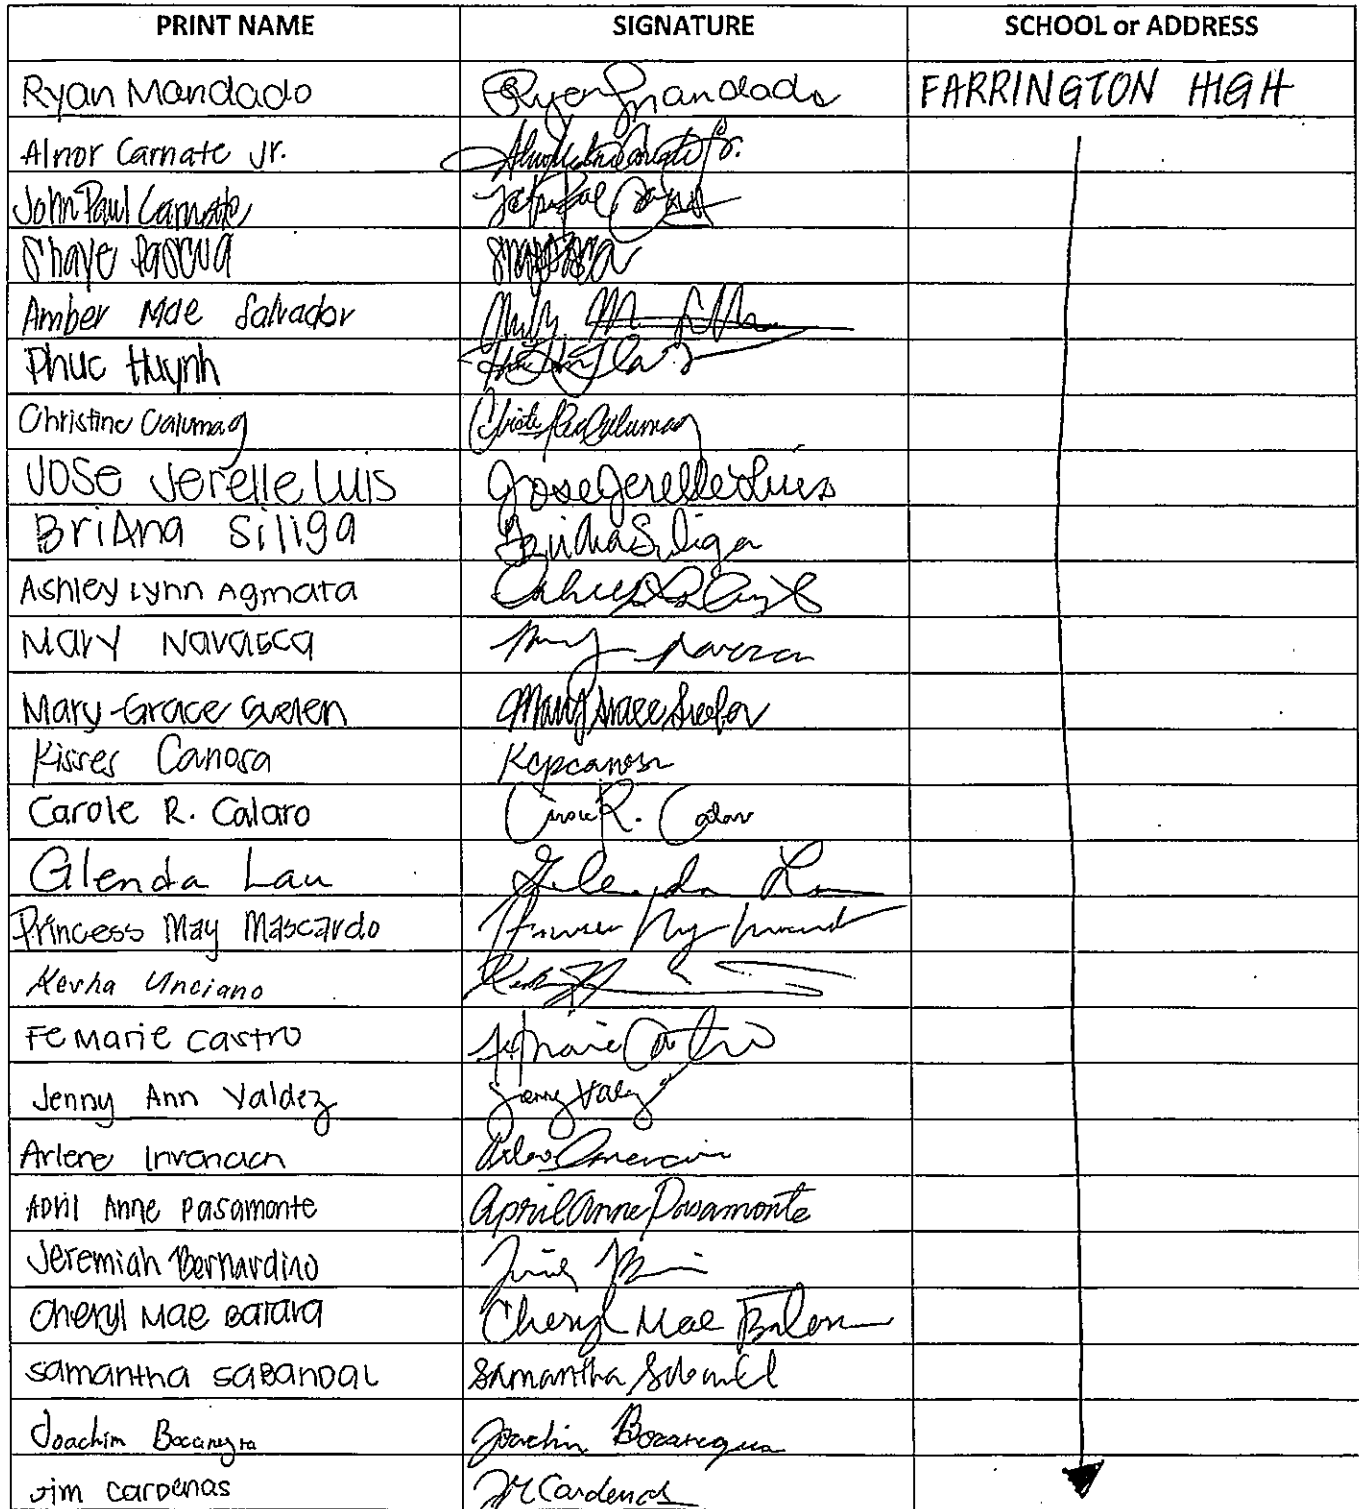 PRINT NAME SIGNATURE SCHOOL or ADDRESS
Ryan Mandado Ryan Mandado FARRINGTON HIGH
Alnor Carnate Jr.
John Paul Carnate John Paul
Shaye Pascua
Amber Mae Salvador
Phuc Huynh
Christine Calumag Calumag
Jose Jerelle Luis Jose Jerelle Luis
BriAna Siliga Briana Siliga
Ashley Lynn Agmata
Mary Navasca Mary
Mary-Grace Mary Grace
Kisses Canosa Kcpcanosa
Carole R. Calaro Carole R. Calaro
Glenda Lau Glenda Lau
Princess May Mascardo
Kevha Unciano
Fe Marie Castro Fe Marie Castro
Jenny Ann Valdez Jenny
Arlene
April Anne Pasamonte April Anne Pasamonte
Jeremiah Bernardino
Cheryl Mae Batara Cheryl Mae
Samantha SABANDAL Samantha
Joachim Bocanegra Joachim Bocanegra
Jim Cardenas Cardenas